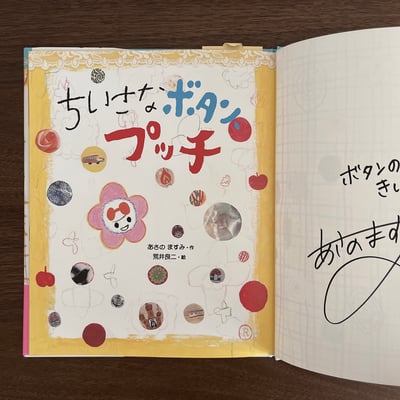 ちいさなボタン、
プッチ
あさの ますみ・作
荒井良二・絵
R
ボタンの
きし
あさのます